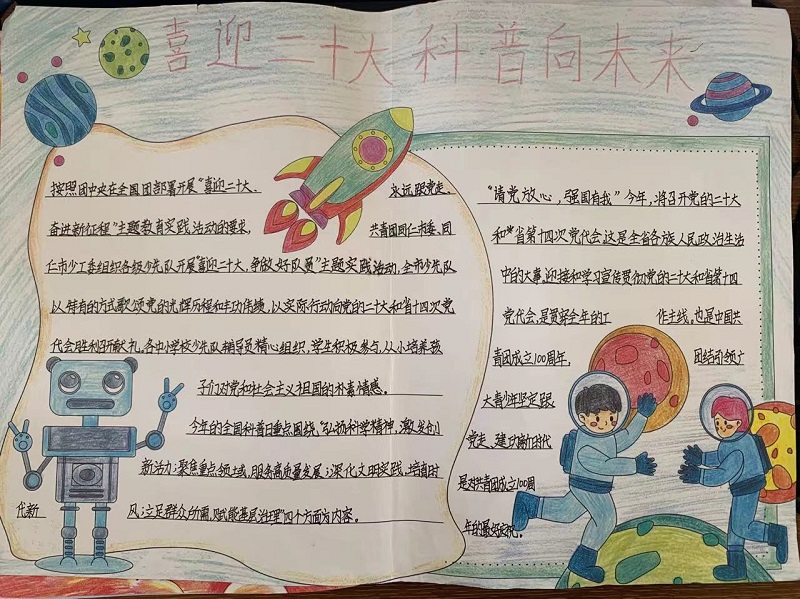 喜迎二十大 科普向未来
按照团中央在全国团部署开展“喜迎二十大、永远跟党走、
奋进新征程”主题教育实践活动的要求,共青团同仁市委、同
仁市少工委组织各级少先队开展“喜迎二十大,争做好队员”主题实践活动,全市少先队
以特有的方式歌颂党的光辉历程和丰功伟绩,以实际行动向党的二十大和省十四次党
代会胜利召开献礼,各中小学校少先队辅导员精心组织,学生积极参与,从小培养孩
子们对党和社会主义祖国的朴素情感。
今年的全国科普日重点围绕“弘扬科学精神,激发创
新活力;聚焦重点领域,服务高质量发展;深化文明实践,培育时
代新风;立足群众所需,赋能基层治理”四个方面为内容。
“请党放心,强国有我”今年,将召开党的二十大
和省第十四次党代会,这是全省各族人民政治生活
中的大事。迎接和学习宣传贯彻党的二十大和省第十四
党代会,是贯穿全年的工作主线。也是中国共
青团成立100周年,团结引领广
大青少年坚定跟
党走、建功新时代
是对共青团成立100周
年的最好庆祝。